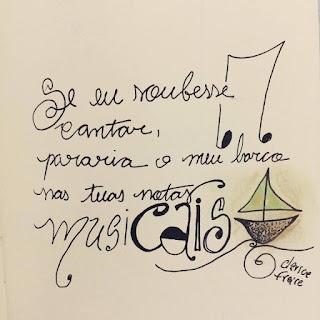 Se eu soubesse
cantar,
pararia o meu barco
nas tuas notas
musicais
clarice
freire